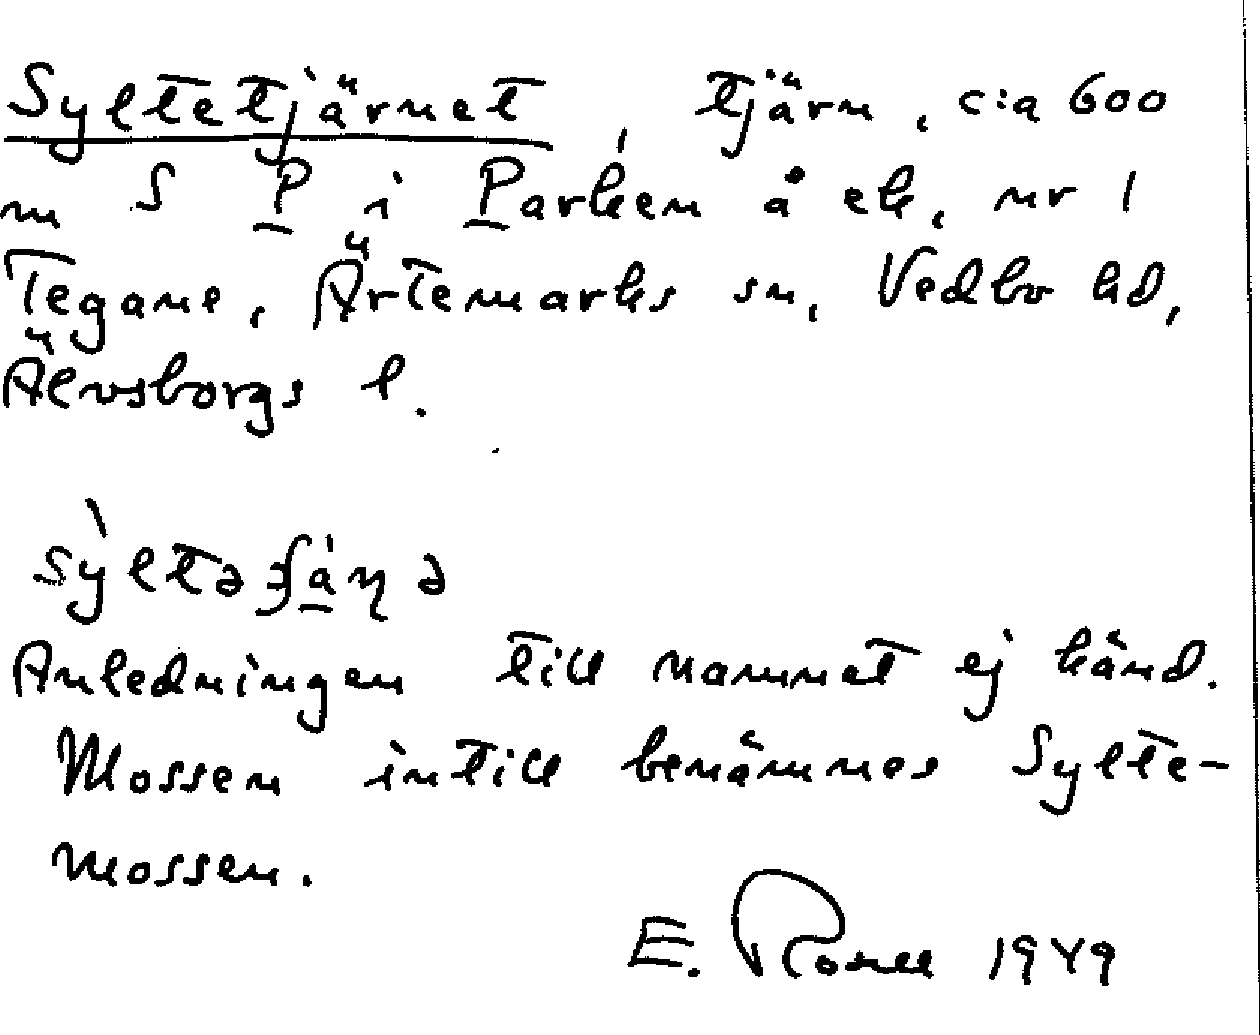 Syltetjärnet, tjärn, c:a 600
m S P i Parken å ek. nr 1
Tegane, Ärtemarks sn, Vedbo hd,
Älvsborgs l.
Anledningen till namnet ej känd.
Mossen intill benämnes Sylte-
mossen.
E. 1949